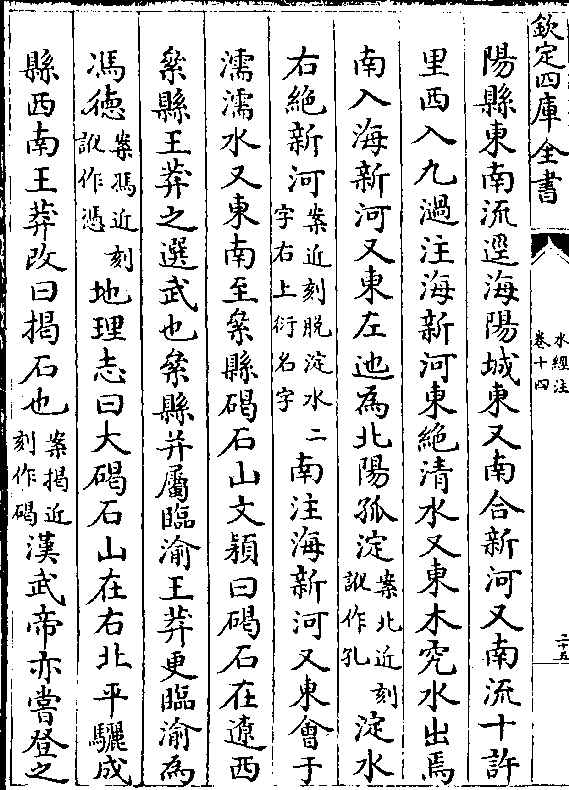 欽定四庫全書
水經注
卷十四
二十五
陽縣東南流逕海陽城東又南合新河又南流十許
里西入九濄注海新河東絶清水又東木究水出焉
南入海新河又東左迆為北陽孤淀案北近刻訛作孔淀水
右絶新河案近刻脱淀水二字右上衍名字南注海新河又東會于
濡濡水又東南至絫縣碣石山文頴曰碣石在遼西
絫縣王莽之選武也絫縣并屬臨渝王莽更臨渝為
馮徳案馮近刻訛作憑地理志曰大碣石山在右北平驪成
縣西南王莽改曰揭石也案揭近刻作碣漢武帝亦嘗登之